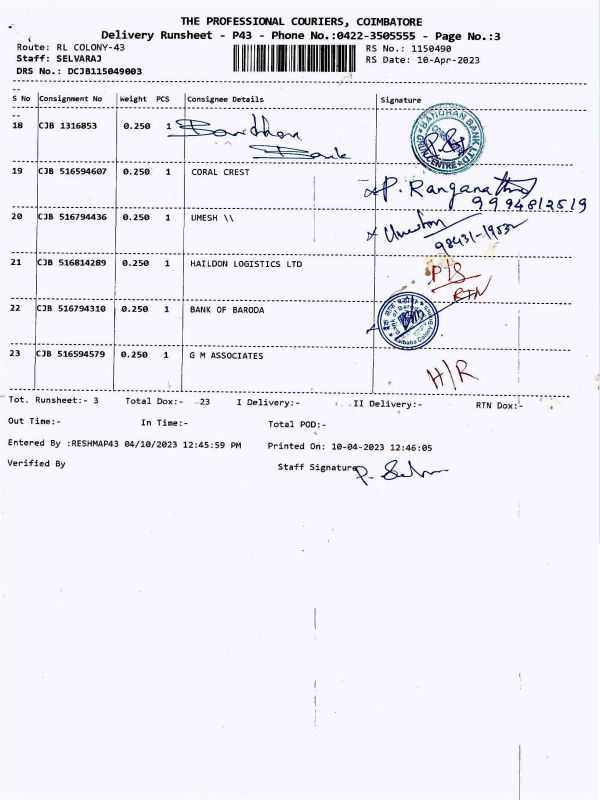 THE PROFESSIONAL COURIERS, COIMBATORE
Delivery Runsheet - P43 - Phone No.:0422-3505555 - Page No.:3
Route: RL COLONY-43 RS No.: 1150490
Staff: SELVARAJ RS Date: 10-Apr-2023
DRS No.: DCJB115049003
S No Consignment No Weight PCS Consignee Details Signature
18 CJB 1316853 0.250 1 Bandhan Bank
BANDHAN BANK LTD
19 CJB 516594607 0.250 1 CORAL CREST P. Ranganathan
9994812519
20 CJB 516794436 0.250 1 UMESH \\
21 CJB 516814289 0.250 1 HAILDON LOGISTICS LTD P/S
RTN
22 CJB 516794310 0.250 1 BANK OF BARODA
23 CJB 516594579 0.250 1 G M ASSOCIATES
H/R
Tot. Runsheet:- 3 Total Dox:- 23 I Delivery:- II Delivery:- RTN Dox:-
Out Time:- In Time:- Total POD:-
Entered By :RESHMAP43 04/10/2023 12:45:59 PM Printed On: 10-04-2023 12:46:05
Verified By Staff Signature